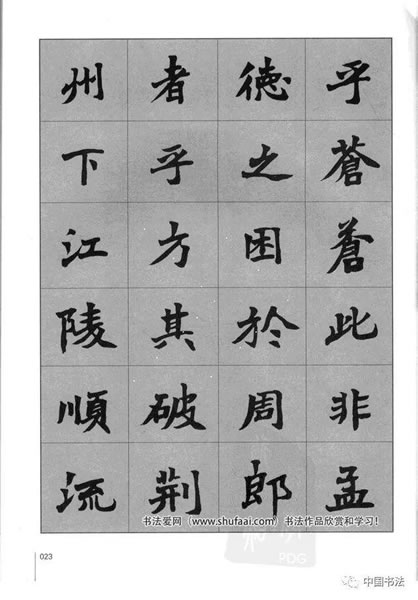 乎蒼蒼此非孟
德之困於周郎
者乎方其破荆
州下江陵順流
书法爱网（www.shufaai.com）书法作品欣赏和学习！
PDG
023
中国书法